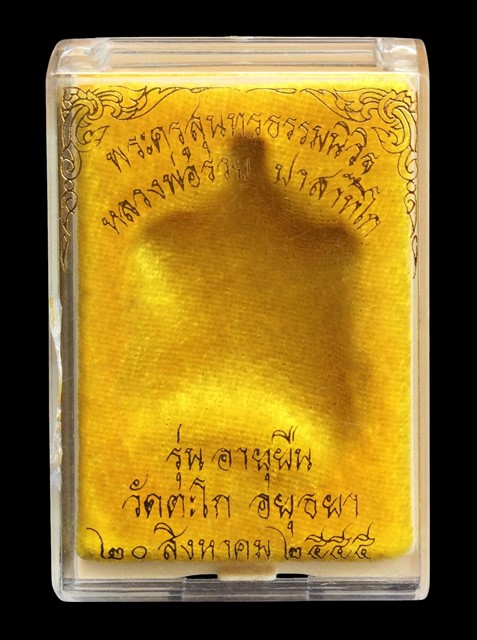 พระครูสุนทรธรรมนิวิฐ
หลวงพ่อรวย ปาสาทิโก
รุ่น อายุยืน
วัดตะโก อยุธยา
๒๐ สิงหาคม ๒๕๕๕